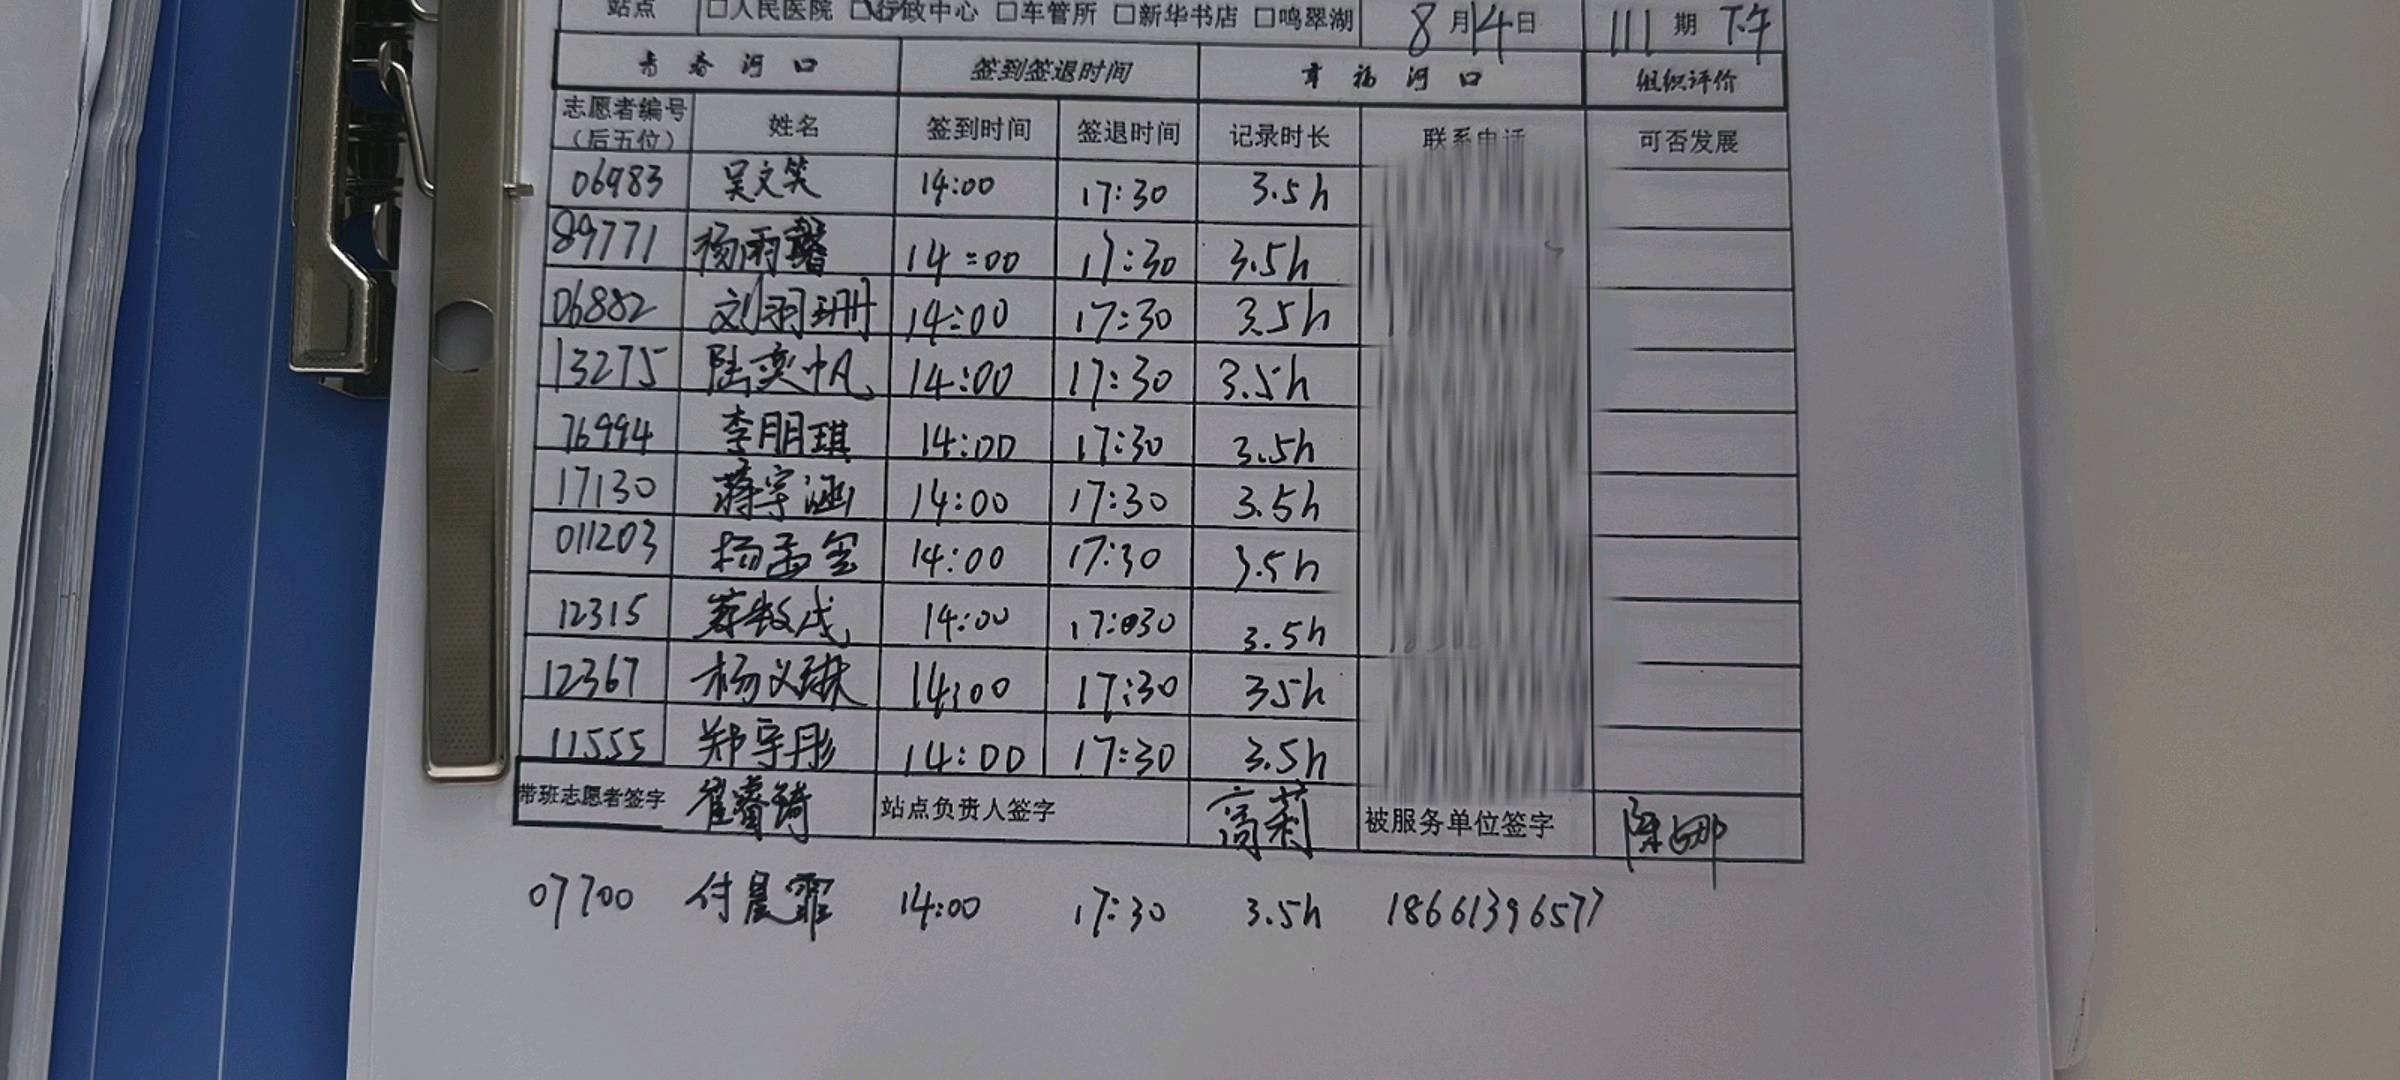 站点 □人民医院 ☑行政中心 □车管所 □新华书店 □鸣翠湖 8月14日 111期 下午
青春河口 签到签退时间 幸福河口 组织评价
志愿者编号（后五位） 姓名 签到时间 签退时间 记录时长 联系电话 可否发展
06983 吴文笑 14:00 17:30 3.5h
89771 杨雨馨 14:00 17:30 3.5h
06882 刘羽珊 14:00 17:30 3.5h
13275 陆奕帆 14:00 17:30 3.5h
76994 李朋琪 14:00 17:30 3.5h
17130 蒋宇涵 14:00 17:30 3.5h
011203 杨孟 14:00 17:30 3.5h
12315 14:00 17:30 3.5h
12367 杨义琳 14:00 17:30 3.5h
11555 郑宇彤 14:00 17:30 3.5h
带班志愿者签字 崔睿锜 站点负责人签字 高莉 被服务单位签字 陈娜
07700 付晨霏 14:00 17:30 3.5h 18661396577